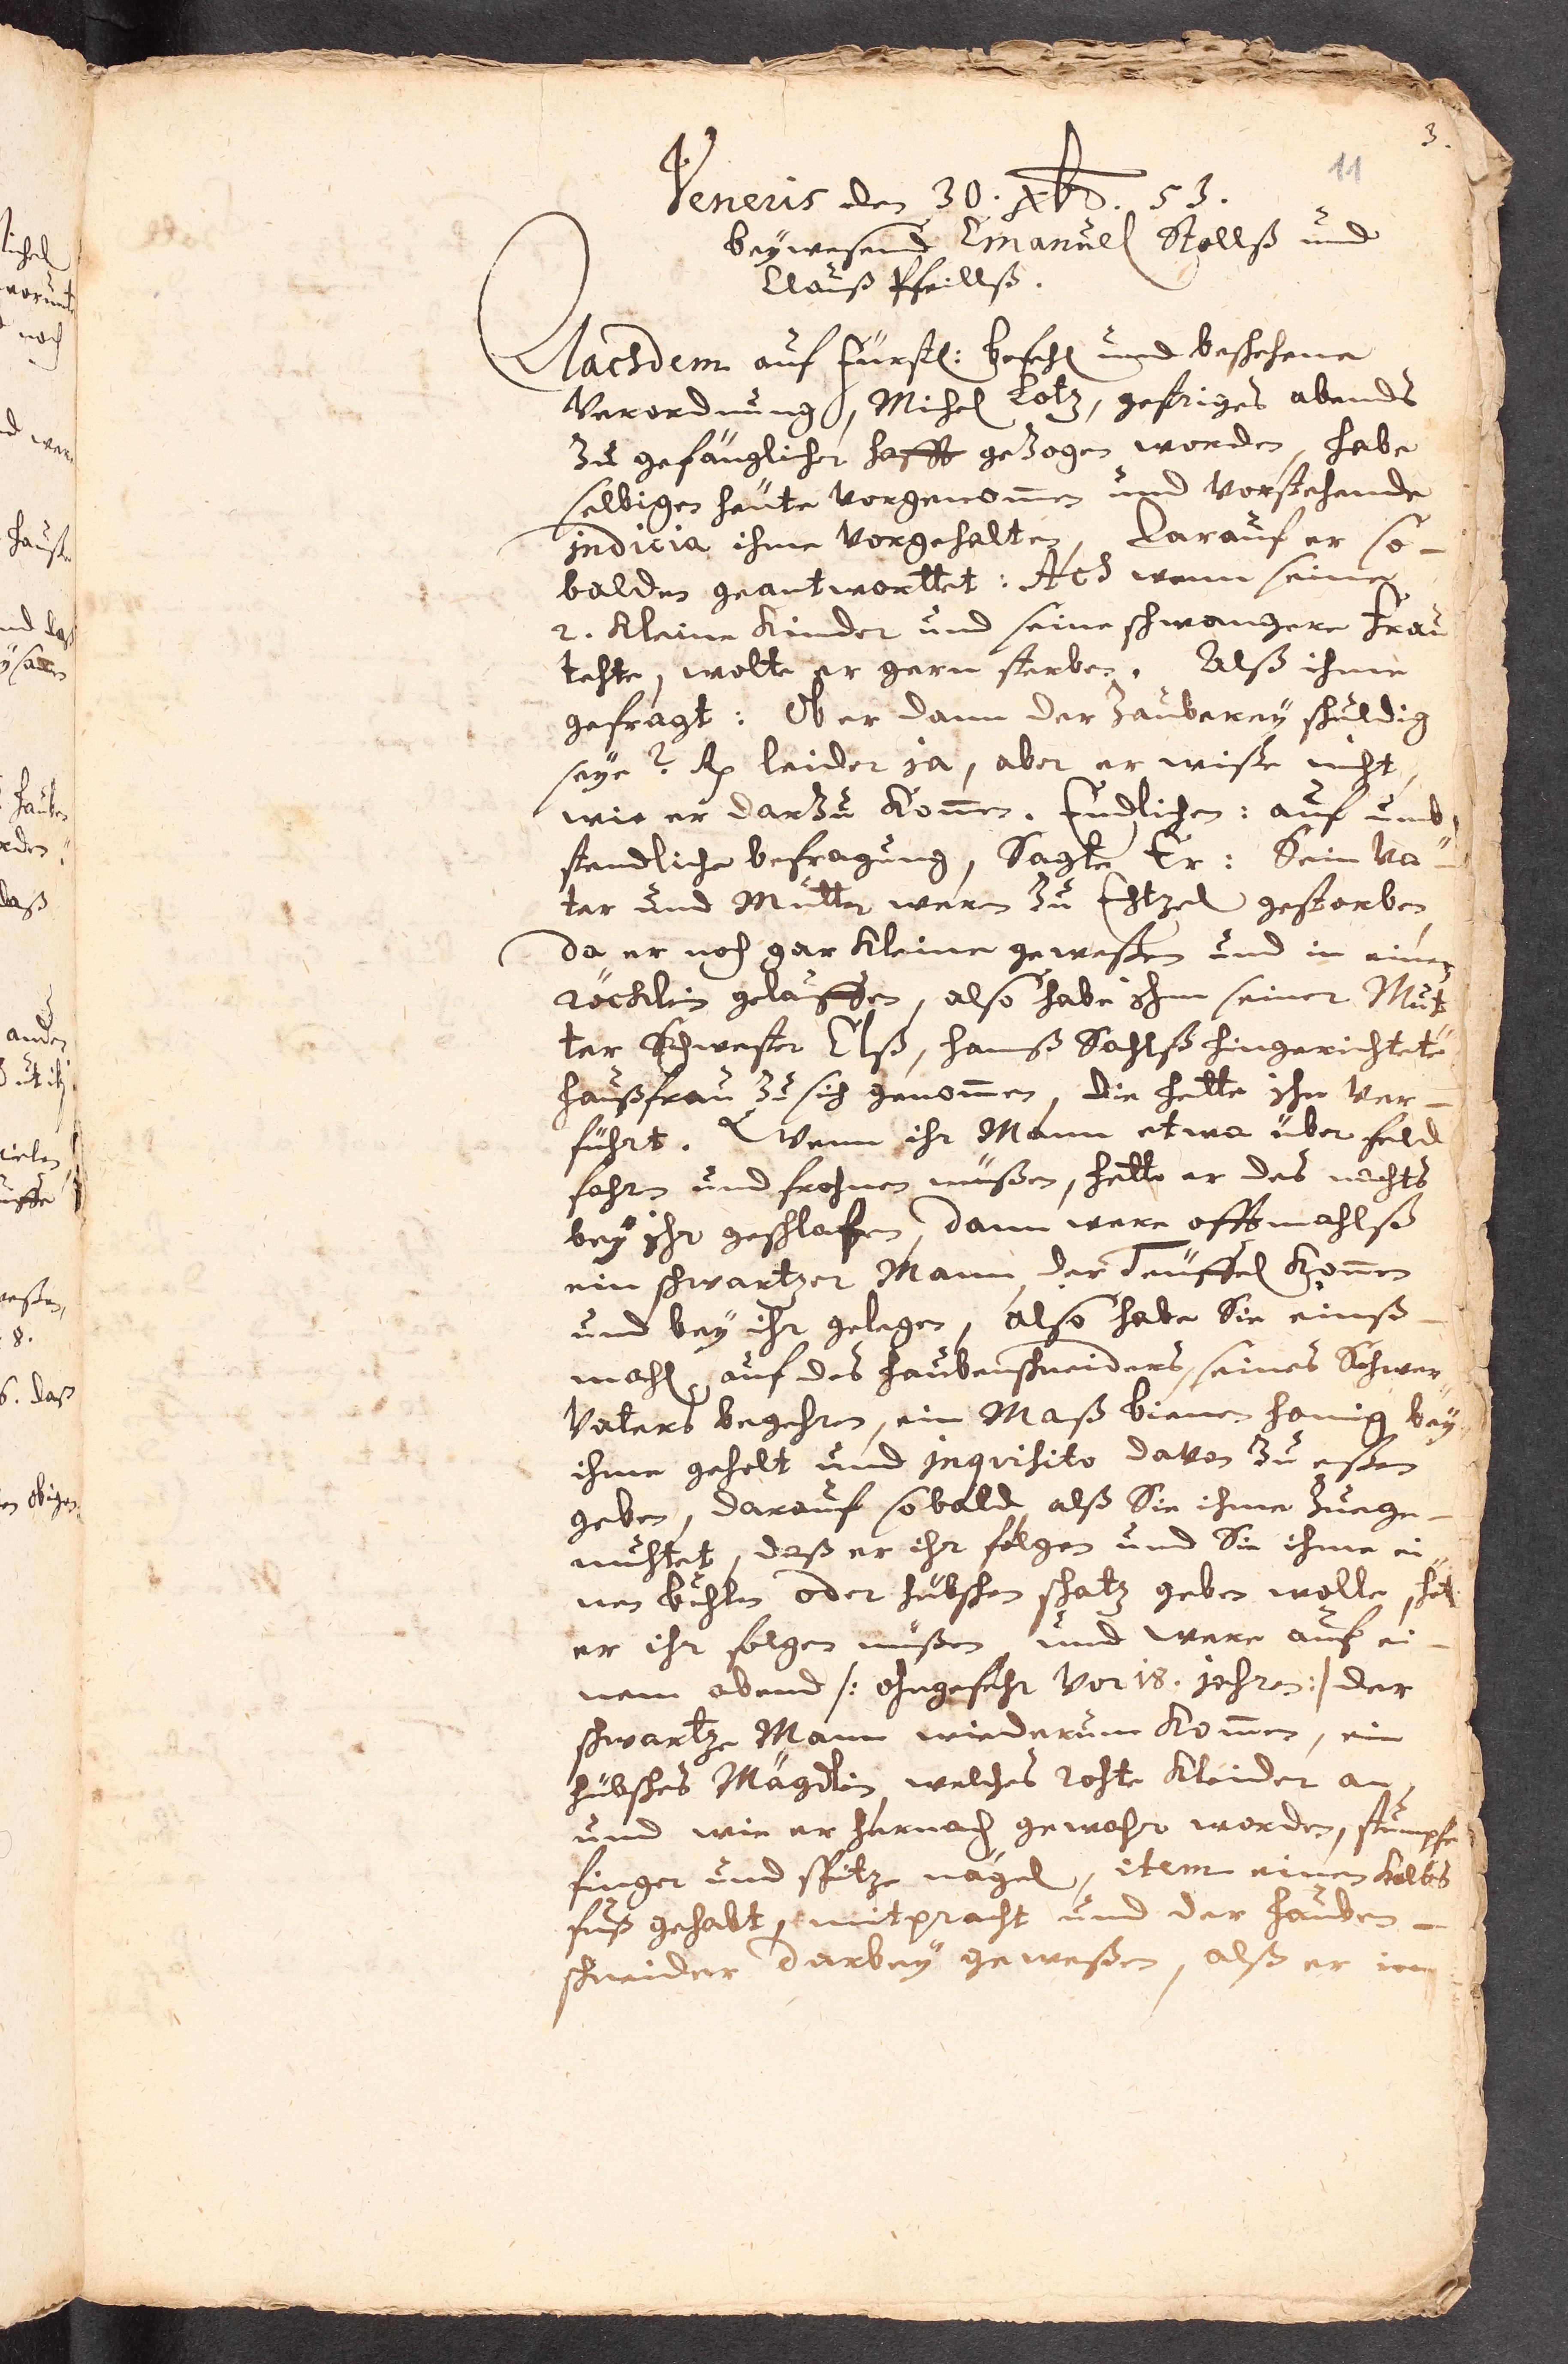 3.
11
Veneris den 30. Xbr. 53.
beywesend Emanuel Stollß und
Clauß Pfeillß.
Nachdem auf Fürstl: befehl und beschehene
Verordnung, Michel Lotz, gestriges abends
zu gefänglicher hafft gezogen worden, habe
selbigen heute vorgenommen und vorstehende
jndicia ihme vorgehalten, Darauf er so-
balden geantworttet: Ach wenn seine
2. kleine Kinder und seine schwangere Frau
tehte, wolte er gern sterben. Alß ihme
gefragt: Ob er dann der Zauberey schuldig
seye? Rp leider ja, aber er wiße nicht,
wie er darzu kommen. Endlichen: auf umb-
stendliche befragung, Sagte Er: Sein Va-
ter und Mutter weren zu Echtzel gestorben,
da er noch gar kleine geweßen und in einem
röcklein gelauffen, also habe ihn seiner Mut-
ter Schwester Elß, hanß Sahlß hingerichtete
haußfrau zu sich genommen, die hette ihn ver-
führt. Wenn ihr Mann etwa über feld
fahrn und frohnen müßen, hette er des nachts
bey ihr geschlafen, dann were offtmahlß
ein schwartzer Mann, der Teuffel kommen
und bey ihr gelegen, also habe Sie einß-
mahl, auf des haubenschneiders, seines Schwer-
Vaters begehren, ein Maß bienen honig bey
ihme geholt und jnquisito davon zu eßen
geben, darauf sobald, alß Sie ihme zuege-
muhtet, daß er ihr folgen und Sie ihme ei-
nen buhlen oder hübschen schatz geben wolle, het
er ihr folgen müßen, und were auf ei-
nem abend /: ohngefehr vor 18. jahren:/ der
schwartze Mann wiederum kommen, ein
hübsches Mägdlein, welches rohte Kleider an,
und wie er hernach gewahr worden, stumpfe
finger und spitze nägel, item einen Kalbs
fuß gehabt, mitpracht und der hauben-
schneider darbey geweßen, alß er